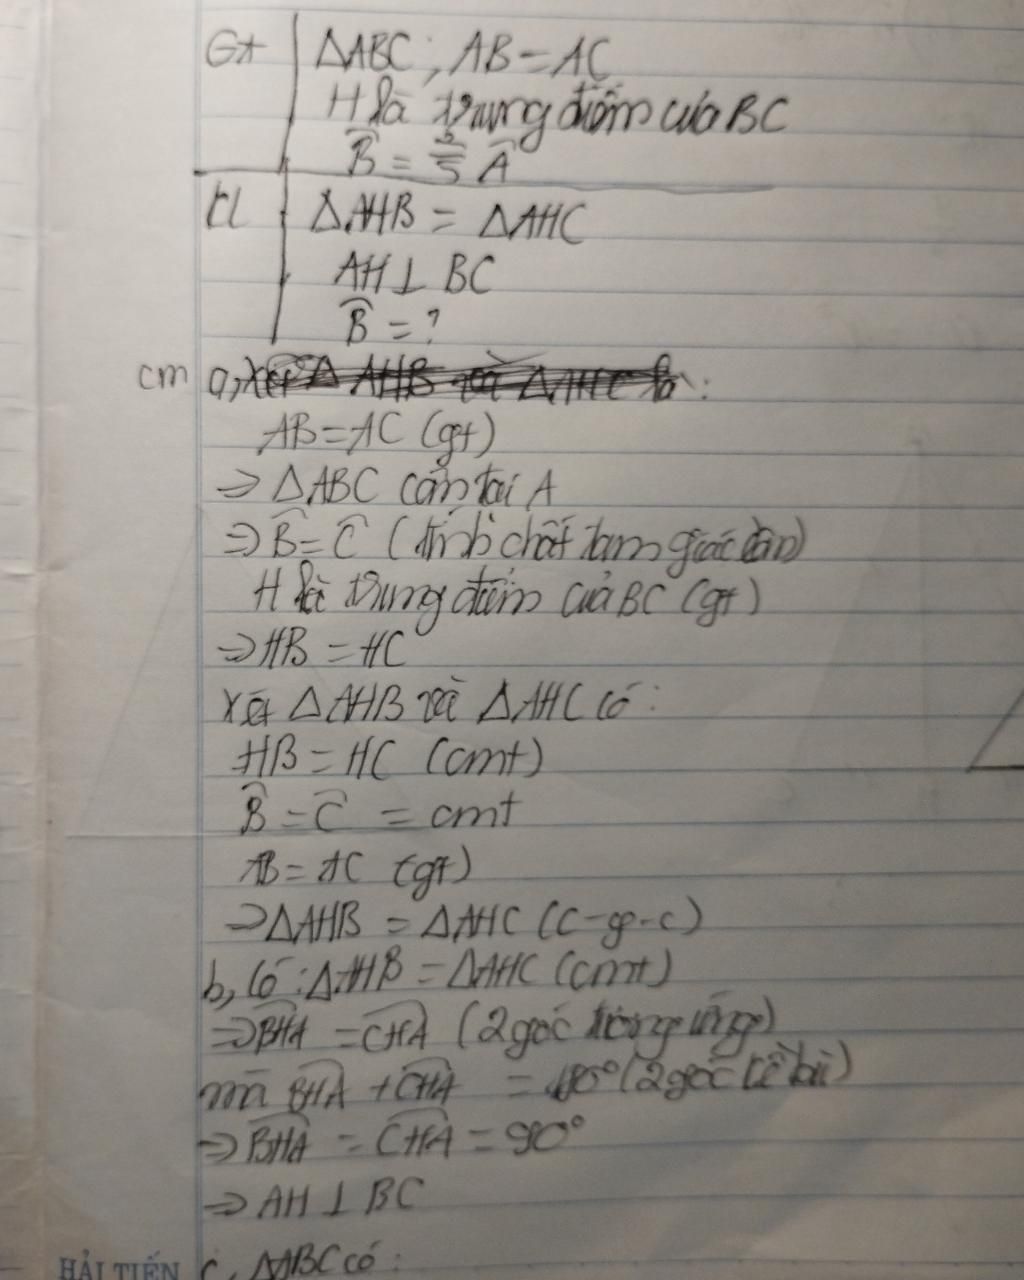 Gt ΔABC; AB=AC
H là trung điểm của BC
B̂ = /5 Â
Kl ΔAHB = ΔAHC
AH⊥ BC
B̂ = ?
cm a, Xét Δ AHB và ΔAHC :
AB=AC (gt)
⇒ ΔABC cân tại A
⇒ B̂=Ĉ (tính chất tam giác cân)
H là trung điểm của BC (gt)
⇒ HB = HC
Xét ΔAHB và ΔAHC có:
HB = HC (cmt)
B̂ = Ĉ = cmt
AB = AC (gt)
⇒ΔAHB = ΔAHC (c-g-c)
b, Có: ΔAHB = ΔAHC (cmt)
⇒BHA = CHA (2 góc tương ứng)
mà BHA + CHA = 180° (2 góc kề bù)
⇒ BHA = CHA = 90°
⇒ AH ⊥ BC
HẢI TIẾN c, ΔABC có: